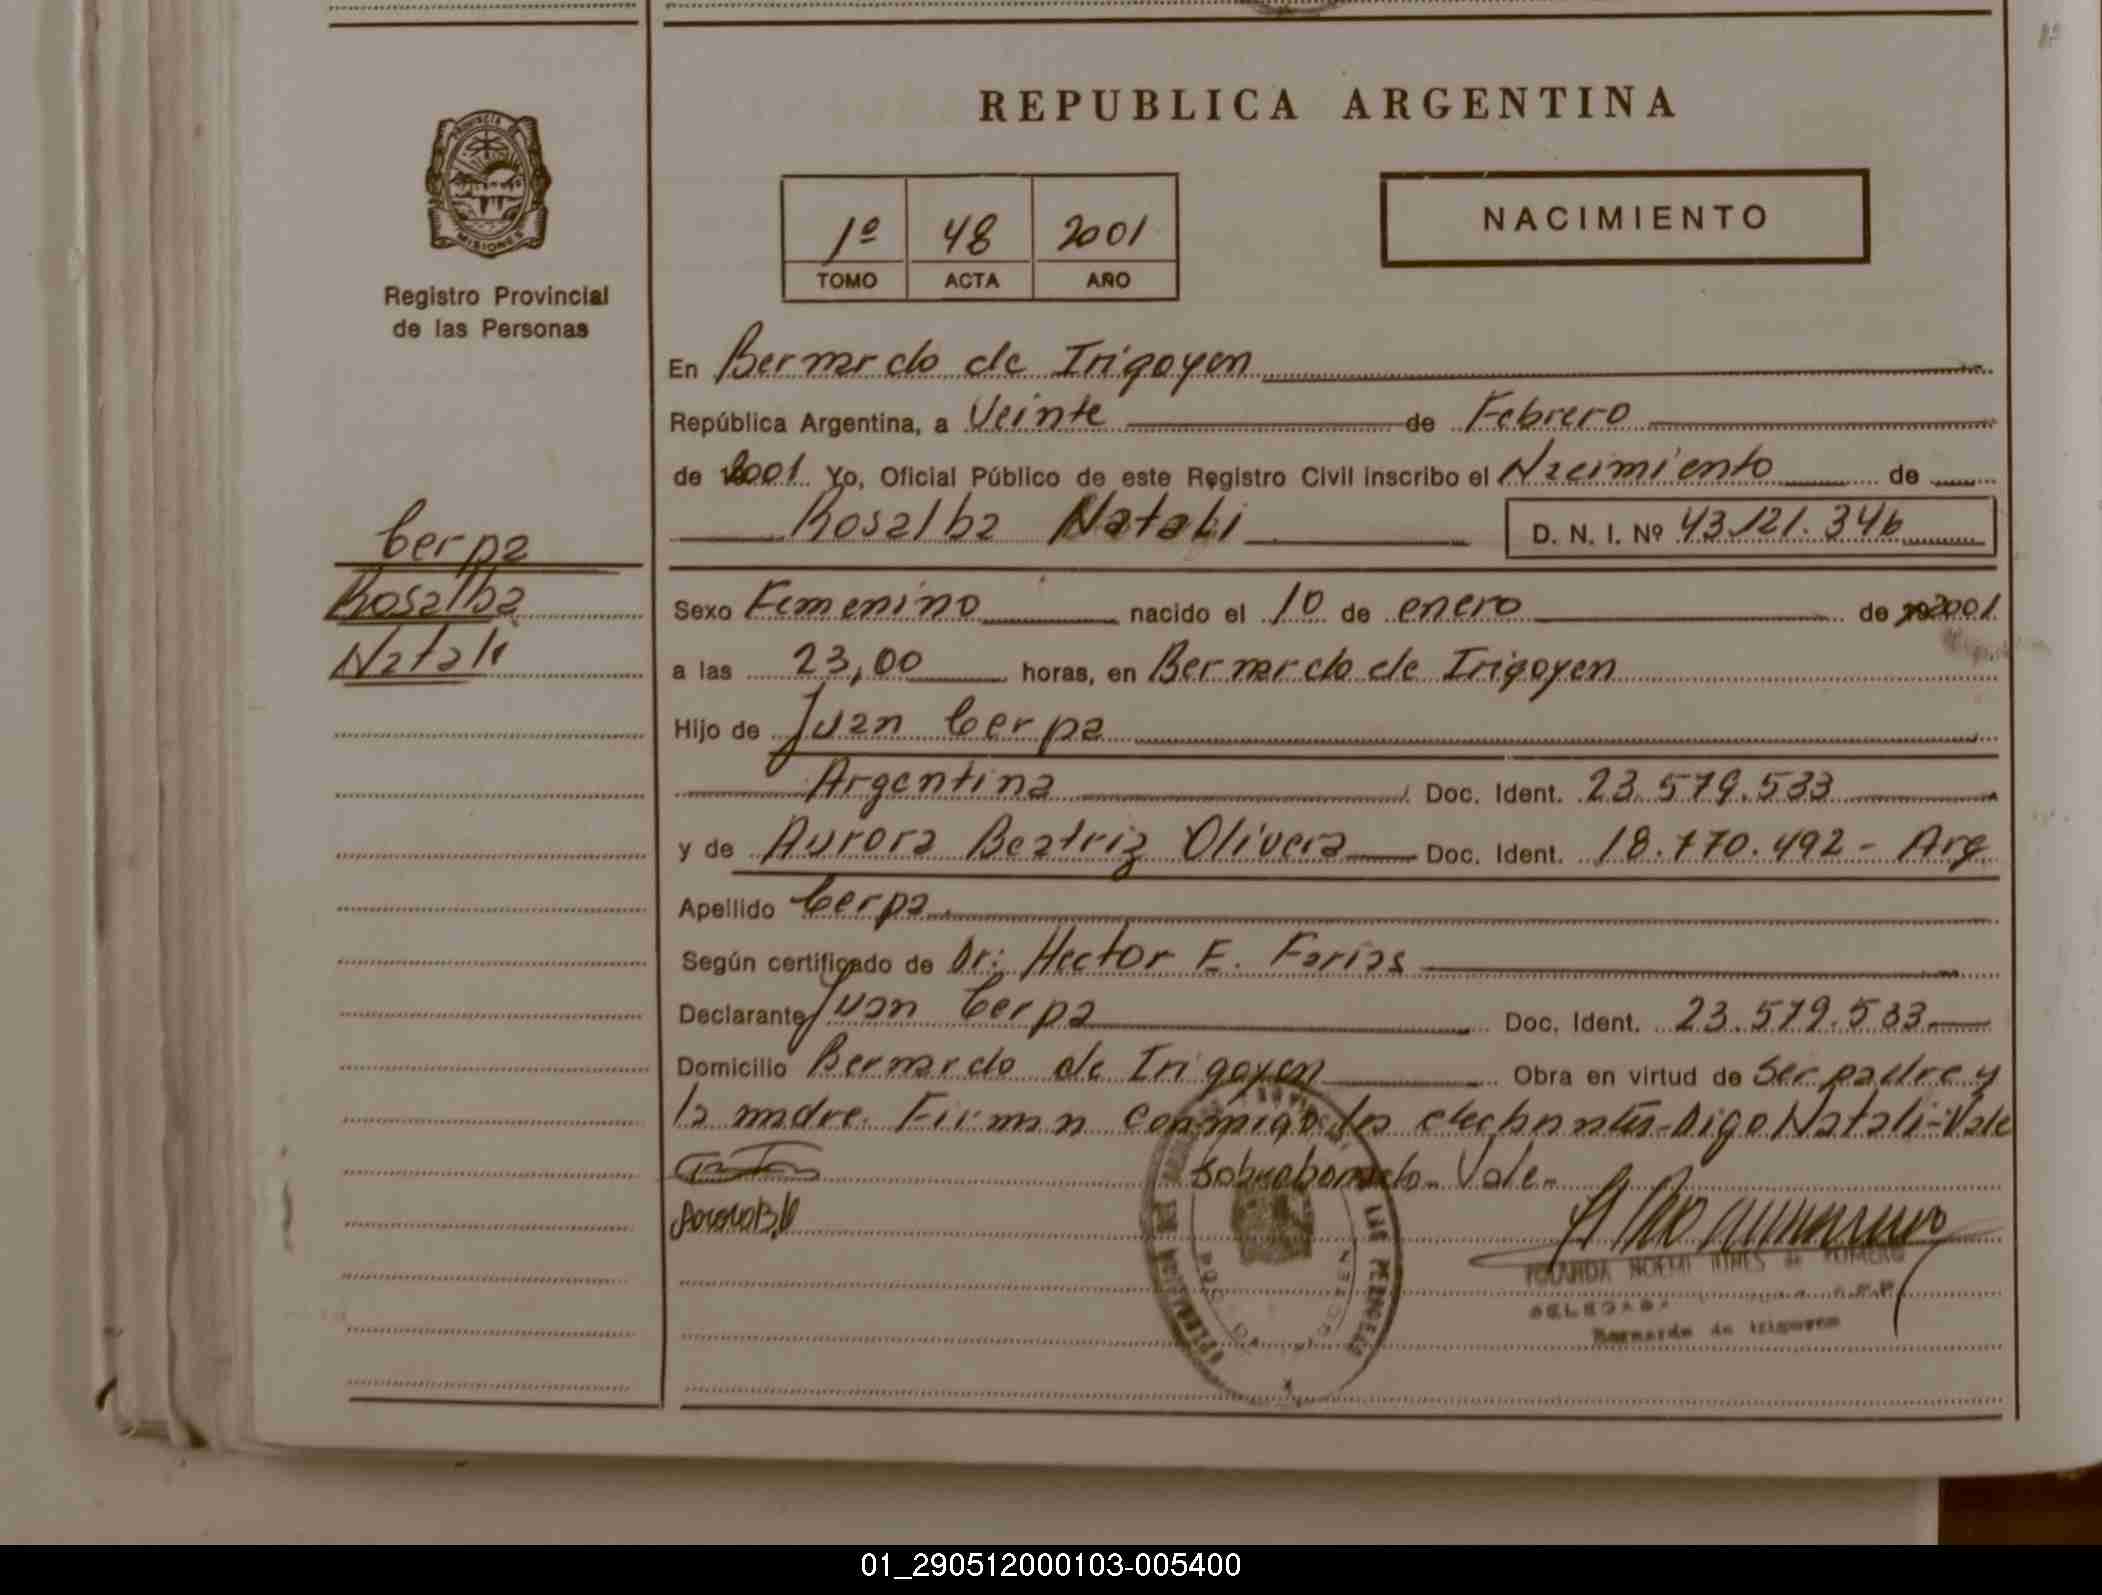 REPUBLICA ARGENTINA
PROVINCIA DE
MISIONES
Registro Provincial
de las Personas
1º 48 2001
TOMO ACTA AÑO
NACIMIENTO
En Bernardo de Irigoyen
República Argentina, a Veinte de Febrero
de 2001 Yo, Oficial Público de este Registro Civil inscribo el Nacimiento de
Rosalba Natali D. N. I. Nº 43.121.346
Cerpa
Rosalba
Natali
Sexo Femenino nacido el 10 de enero de 2001
a las 23,00 horas, en Bernardo de Irigoyen
Hijo de Juan Cerpa
Argentina Doc. Ident. 23.579.533
y de Aurora Beatriz Olivera Doc. Ident. 18.770.492 - Arg
Apellido Cerpa
Según certificado de Dr: Hector E. Farias
Declarante Juan Cerpa Doc. Ident. 23.579.533
Domicilio Bernardo de Irigoyen Obra en virtud de Ser padre y
la madre. Firman conmigo los declarantes - Digo Natali - Vale
Sobreborrado - Vale -
YOLANDA NOEMI de ROMERO
DELEGADA
Bernardo de Irigoyen
01_290512000103-005400